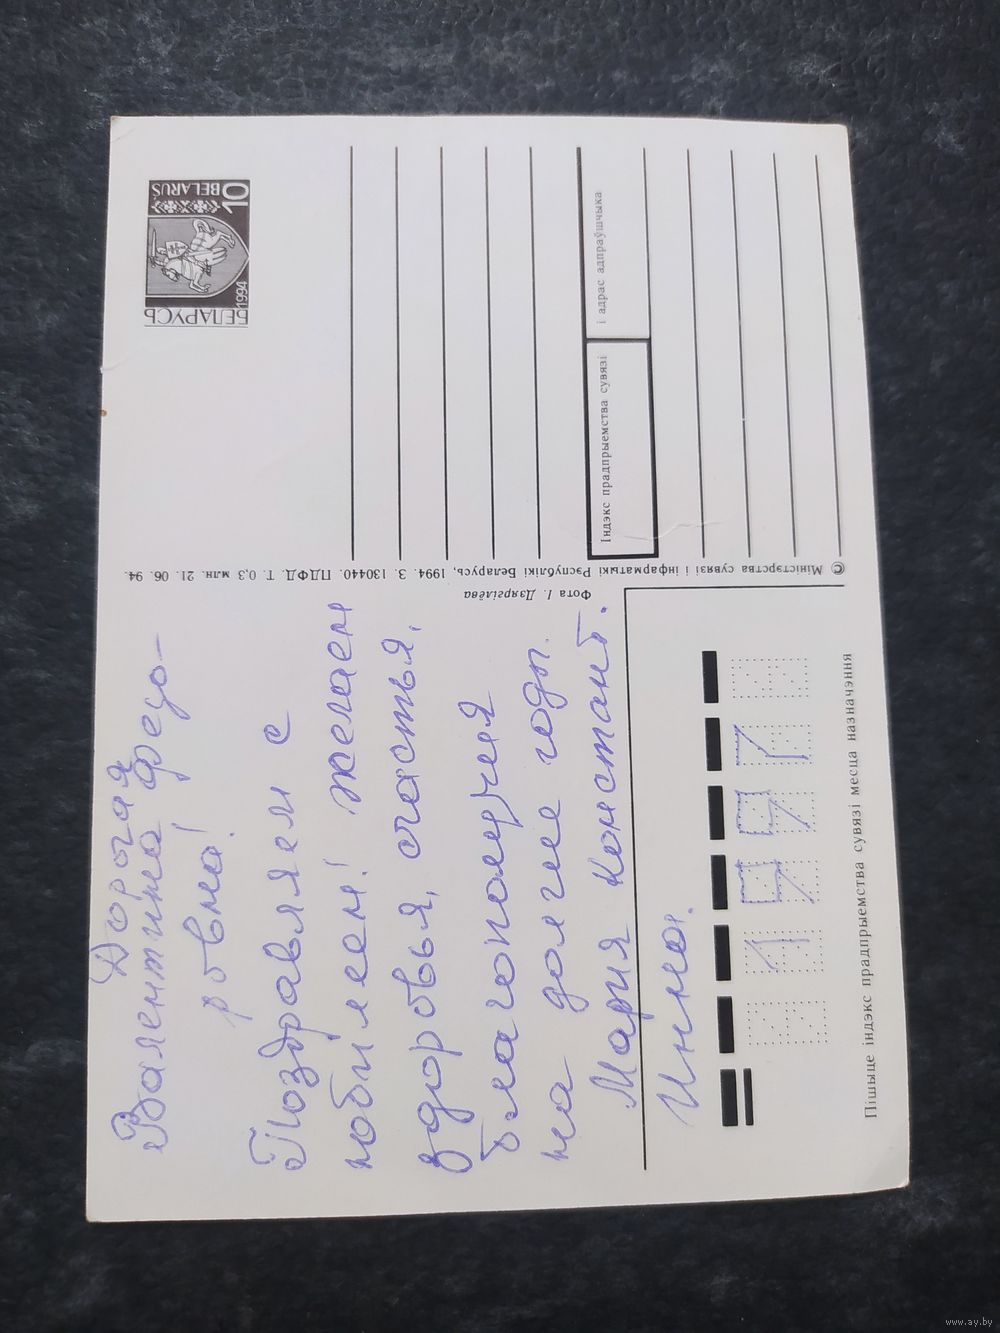 Дорогая
Валентина Федо-
ровна!
Поздравляем с
юбилеем! Желаем
здоровья, счастья,
благополучия
на долгие годы.
Мария Констант.
Инна.
Пішыце індэкс прадпрыемства сувязі месца назначэння
Фота І. Дзяргілёва
© Міністэрства сувязі і інфарматыкі Рэспублікі Беларусь, 1994. З. 130440. ПДФД. Т. 0,3 млн. 21. 06. 94.
БЕЛАРУСЬ
1994
10
BELARUS
Індэкс прадпрыемства сувязі
і адрас адпраўшчыка
www.ay.by